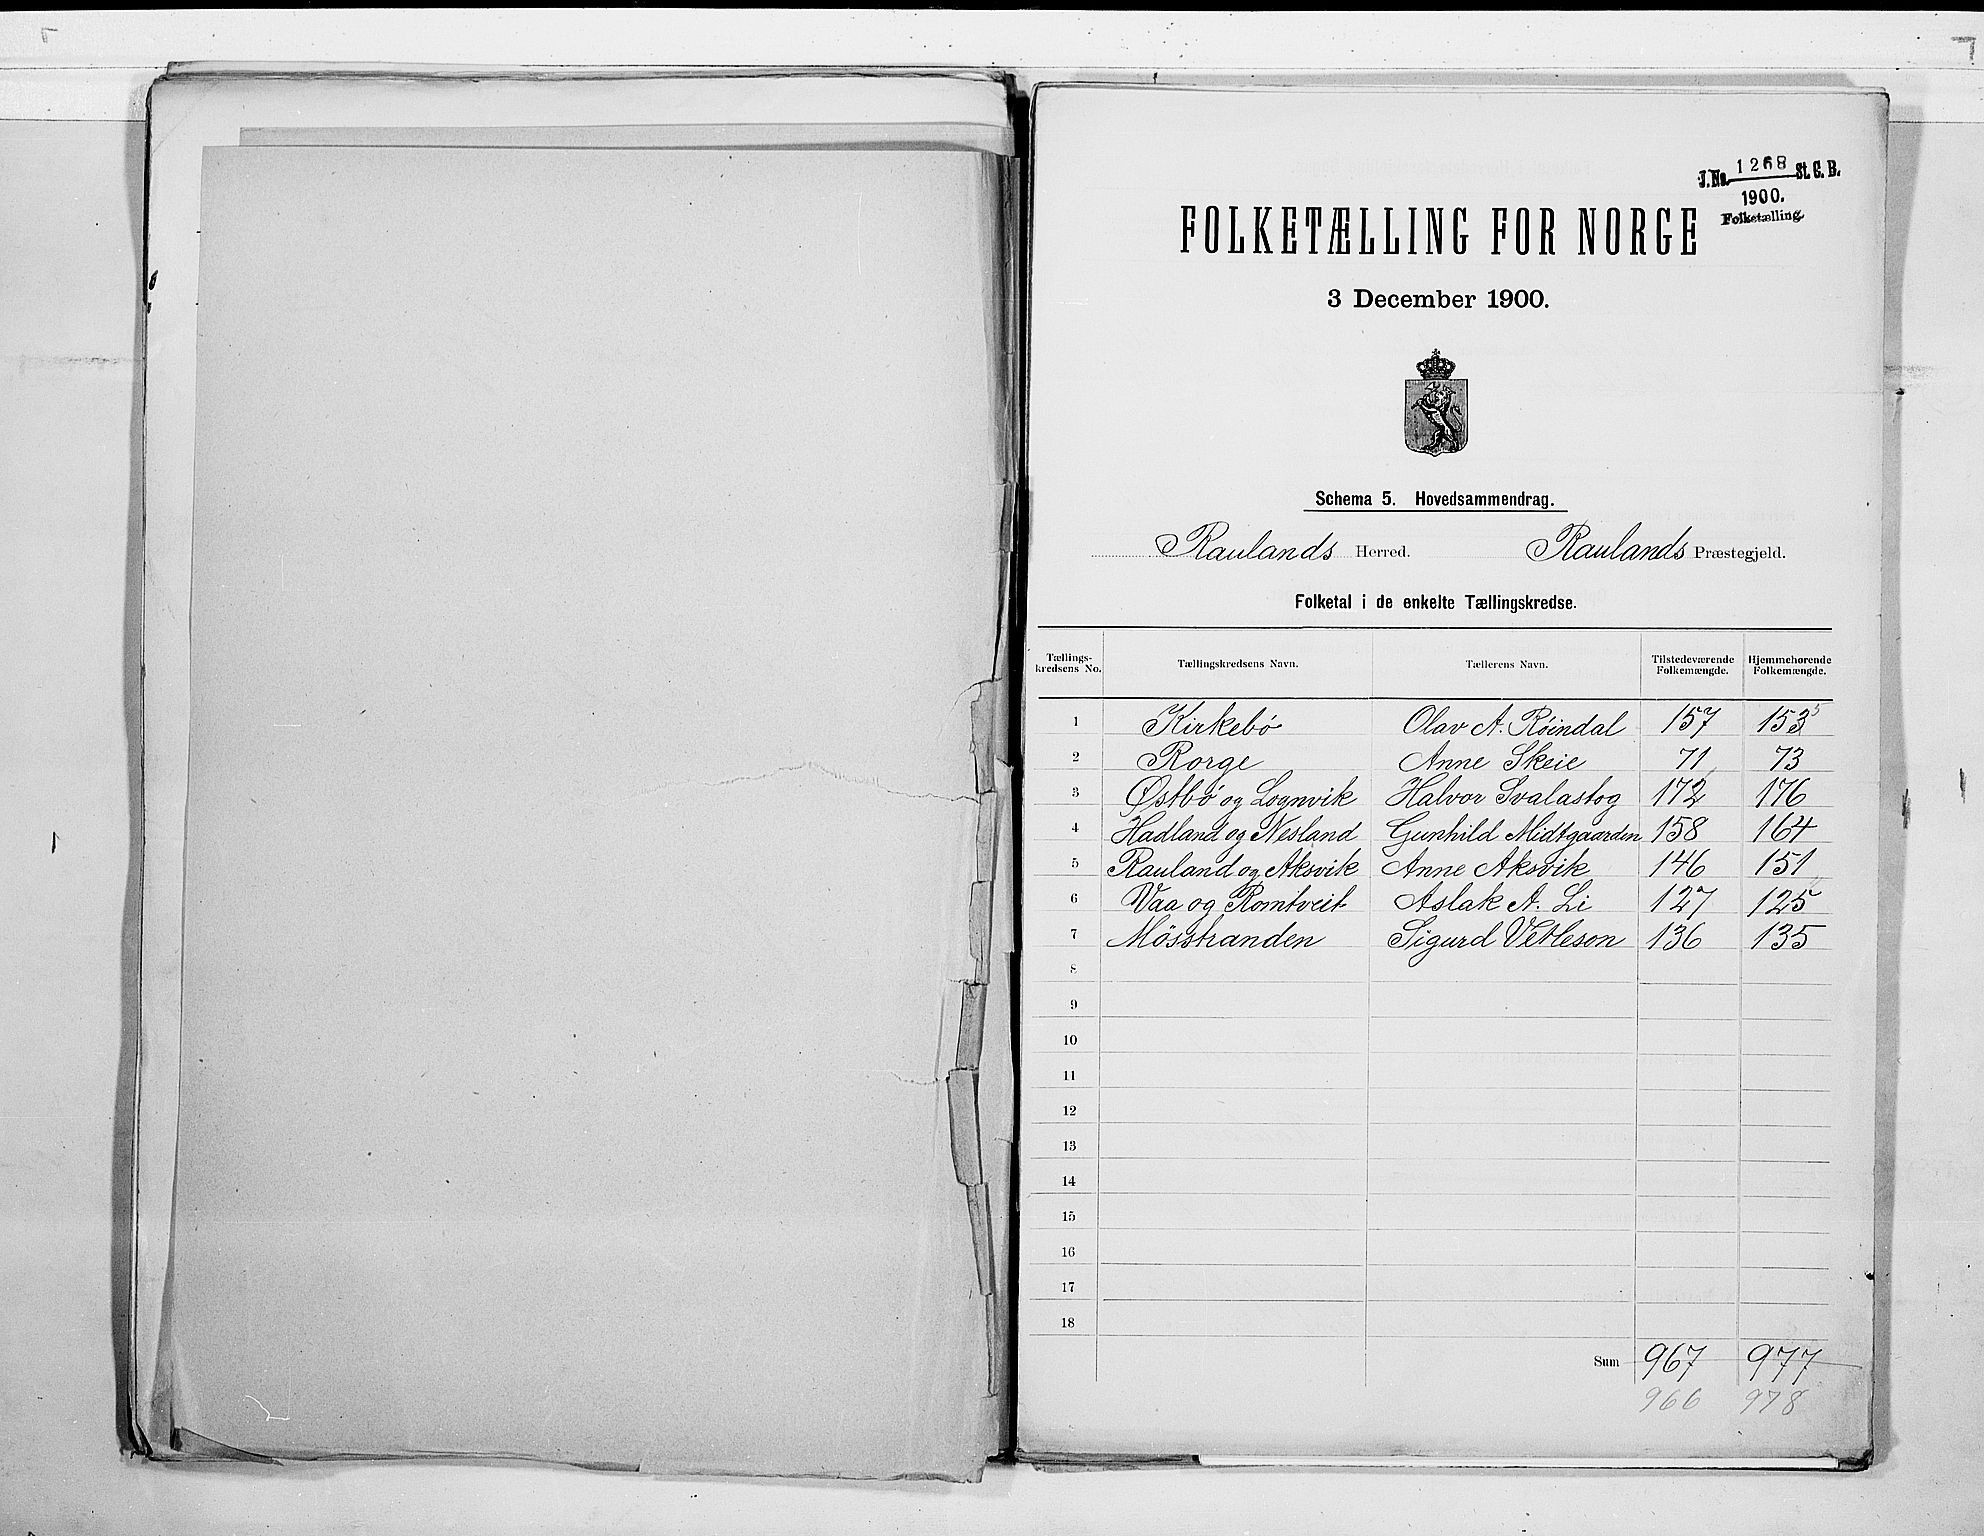 J. No. 1268 St. C. B.
1900.
Folketælling.
FOLKETÆLLING FOR NORGE
3 December 1900.
Schema 5. Hovedsammendrag.
Raulands Herred. Raulands Præstegjeld.
Folketal i de enkelte Tællingskredse.
Tællings-kredsens No. Tællingskredsens Navn. Tællerens Navn. Tilstedeværende Folkemængde. Hjemmehørende Folkemængde.
1 Kirkebø Olav A. Røindal 157 153 5
2 Rorge Anne Skeie 71 73
3 Østbø og Lognvik Halvor Svalastog 172 176
4 Hadland og Nesland Gunhild Midtgaarden 158 164
5 Rauland og Aksvik Anne Aksvik 146 151
6 Vaa og Romtveit Aslak A. Li 127 125
7 Mösstranden Sigurd Vetleson 136 135
8
9
10
11
12
13
14
15
16
17
18
Sum 967 977
966 978